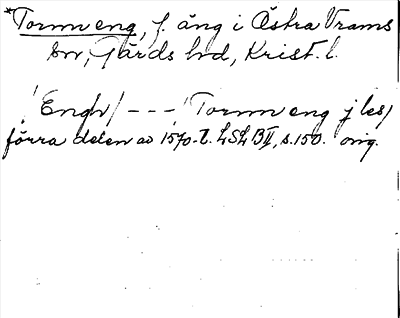 *Torrmeng, f. äng i Östra Vrams
sn, Gärds hd, Krist. l.
'Engh/ - - - 'Tormm eng j les/
förra delen av 1570-t. LSLBII, s. 150. orig.